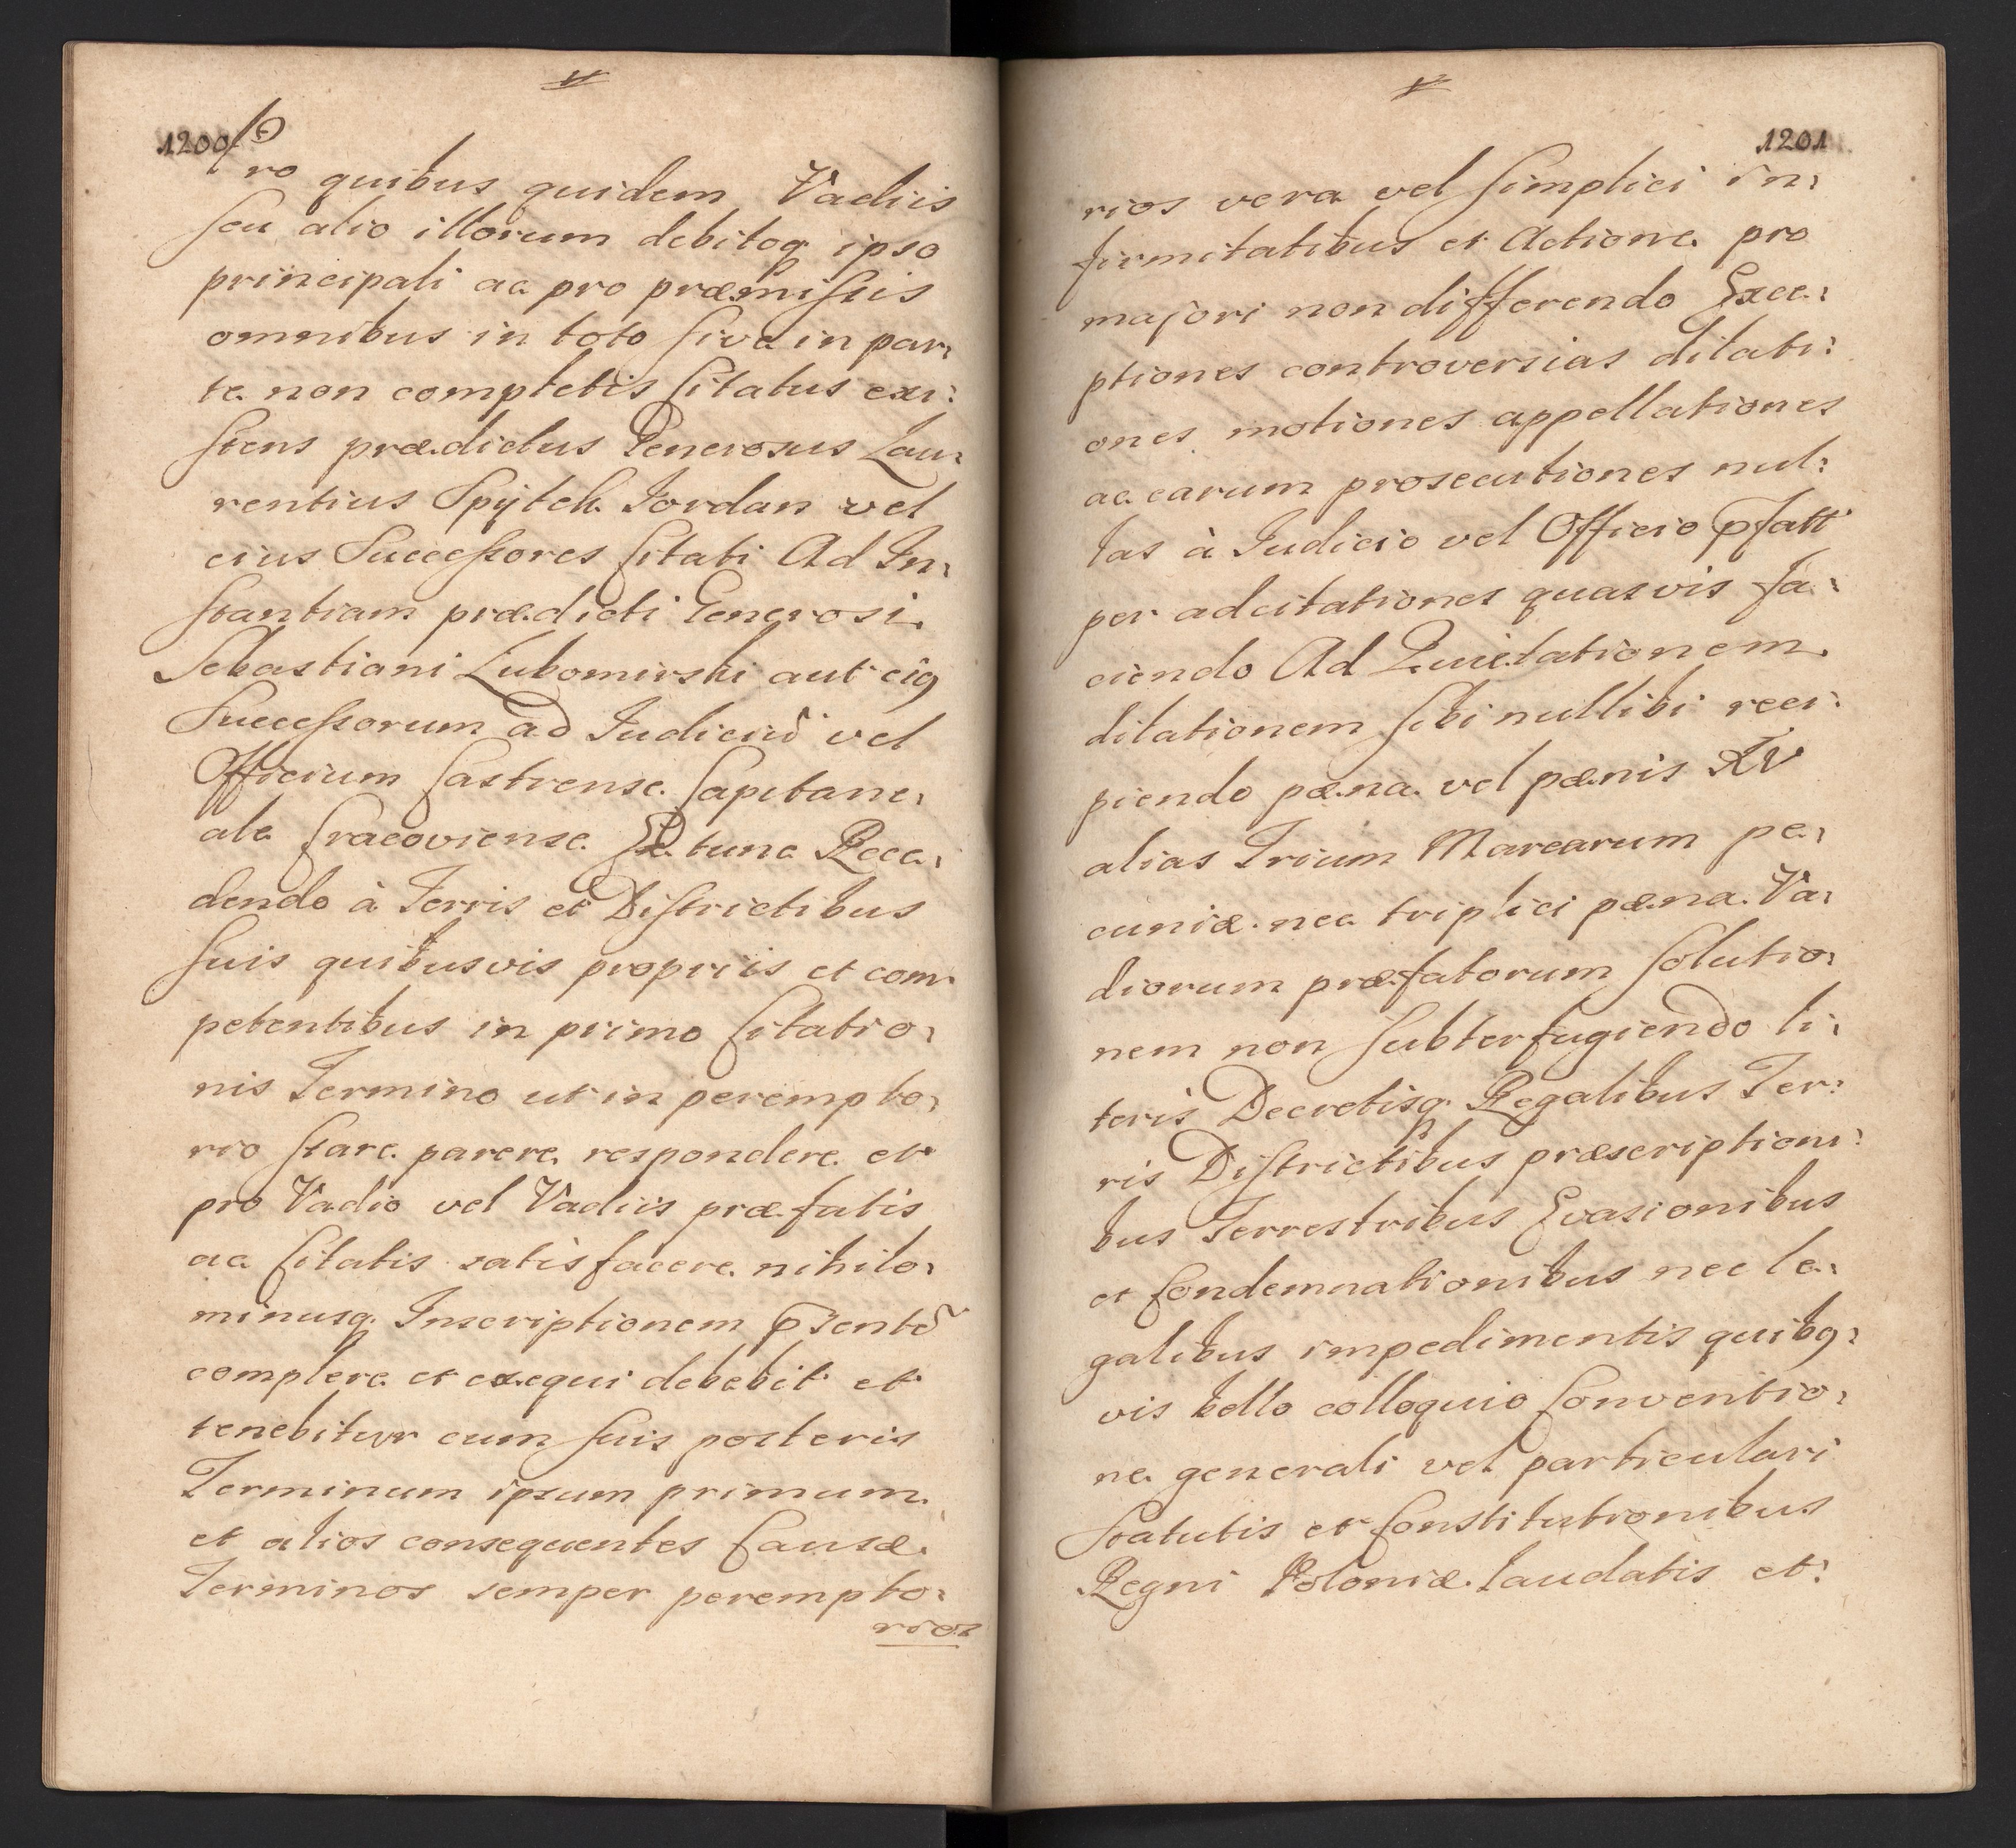 1200
Pro quibus quidem Vadiis
seu alio illorum debitoq ipso
principali ac pro præmissis
omnibus in toto sive in par:
te non completis Citatus exi:
stens prædictus Generosus Lau:
rentius Spÿtek Jordan vel
eius Successores Citati Ad In:
stantiam prædicti Generosi
Sebastiani Lubomirski aut eiq
Successorum ad Iudiciũ vel
Officium Castrense Capitane:
ale Cracoviense Ex tunc Rece:
dendo à Terris et Districtibus
suis quibusvis propriis et com:
petentibus in primo Citatio:
nis Termino ut in perempto:
rio stare parere respondere et
pro Vadio vel Vadiis præfatis
ac Citatis satisfacere nihilo:
minusq. Inscriptionem pſentẽ
complere et exequi debebit et
tenebitur cum suis posteris
Terminum ipsum primum
et alios consequentes Causæ
Terminos semper perempto:
rios
1201
rios vera vel simplici in:
firmitatibus et Actione pro
majori non differendo Exce:
ptiones controversias dilati:
ones motiones appellationes
ac earum prosecutiones nul:
las à Iudicio vel Officio pſatt
per adcitationes quasvis fa:
ciendo Ad Quietationem
dilationem sibi nullibi reci:
piendo pæna vel pænis XIV
alias Trium Marcarum pe:
cuniæ nec triplici pæna Va:
diorum præfatorum solutio:
nem non subterfugiendo li:
teris Decretisq. Regalibus Ter:
ris Districtibus præscriptioni:
bus Terrestribus Evasionibus
et Condemnationibus nec le:
galibus impedimentis quibq:
vis bello colloquio Conventio:
ne generali vel particulari
Statutis et Constitutionibus
Regni Poloniæ laudatis et: